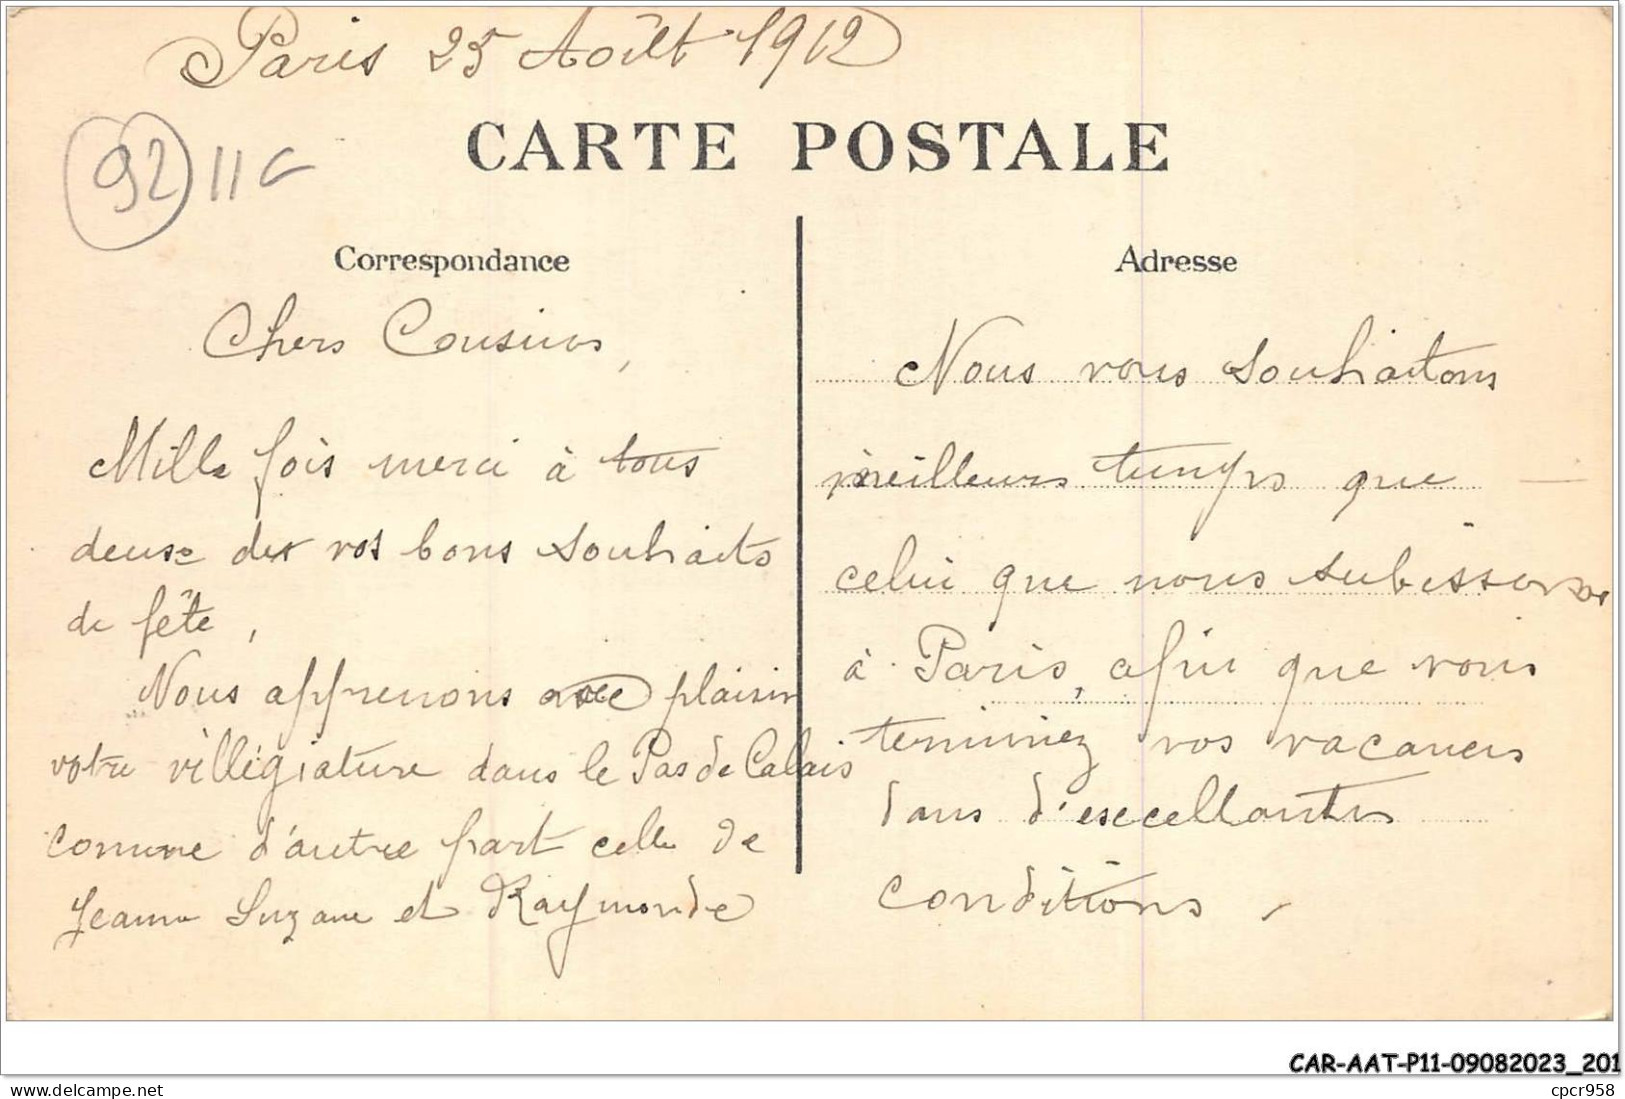 Paris 25 Août 1912
92 11 G
CARTE POSTALE
Correspondance
Chers Cousins,
Mille fois merci à tous
deux de vos bons souhaits
de fête,
Nous apprenons avec plaisir
votre villégiature dans le Pas de Calais
comme d'autre part celle de
Jeanne Suzane et Raymonde
Adresse
Nous vous souhaitons
meilleurs temps que
celui que nous subissons
à Paris, afin que vous
terminiez vos vacances
dans d'excellantes
conditions.
CAR-AAT-P11-09082023_201
cpcr958